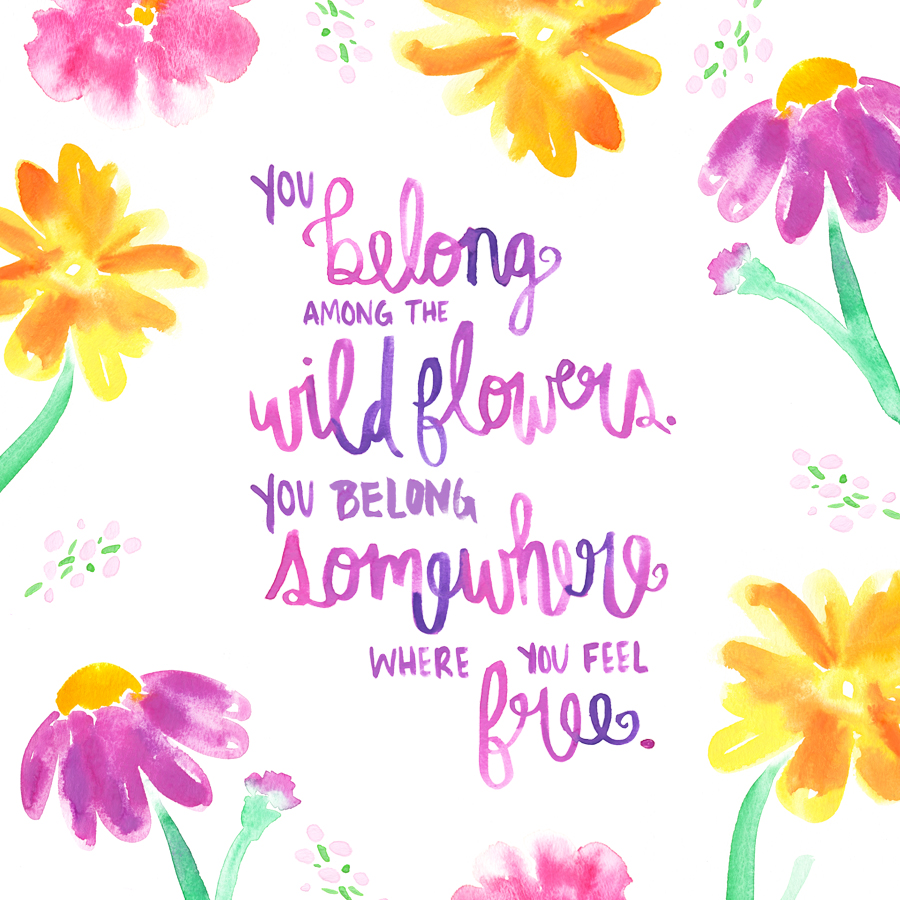 YOU
belong
AMONG THE
wildflowers.
YOU BELONG
somewhere
WHERE YOU FEEL
free.